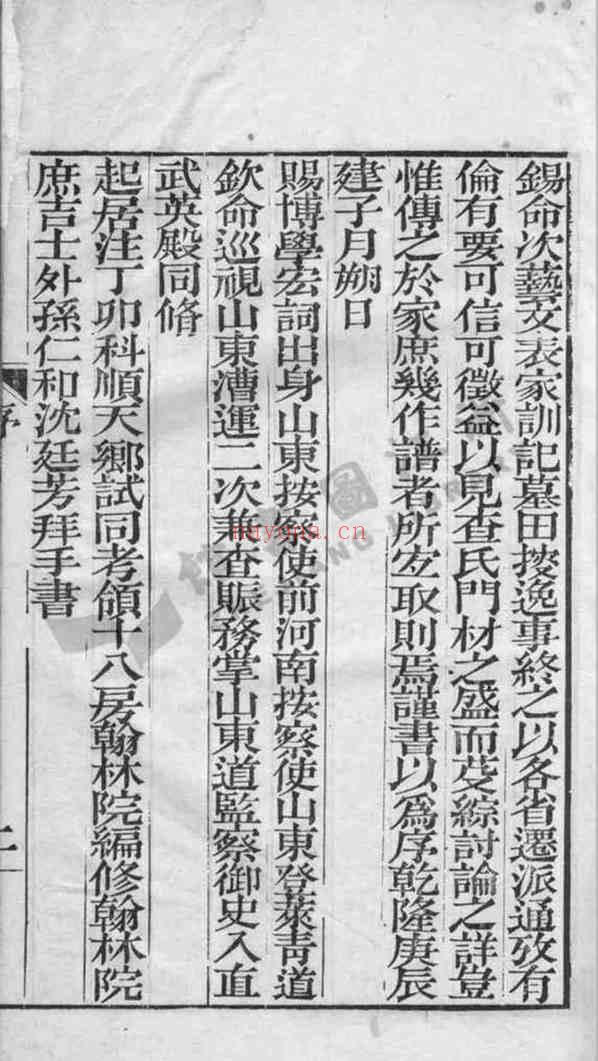 錫命次藝文表家訓記墓田掇逸事終之以各省遷派通攷有
倫有要可信可徵益以見查氏門材之盛而芟綜討論之詳豈
惟傳之於家庶幾作譜者所宜取則焉謹書以為序乾隆庚辰
建子月朔日
賜博學宏詞出身山東按察使前河南按察使山東登萊青道
欽命巡視山東漕運二次兼查賑務掌山東道監察御史入直
武英殿同脩
起居注丁卯科順天鄉試同考領十八房翰林院編修翰林院
庶吉士外孫仁和沈廷芳拜手書
序
二
nayona.cn